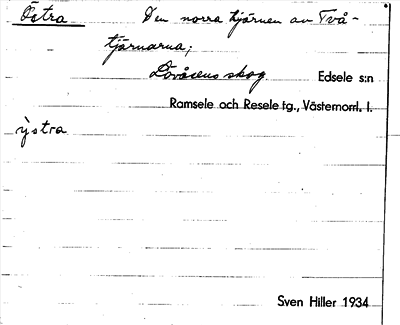 Östra Den norra tjärnen av Två-
tjärnarna;
Lövåsens skog Edsele s:n
Ramsele och Resele tg., Västernorrl. l.
ystra
Sven Hiller 1934